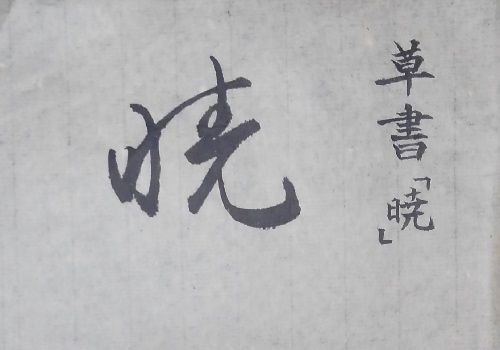 草書「暁」
暁